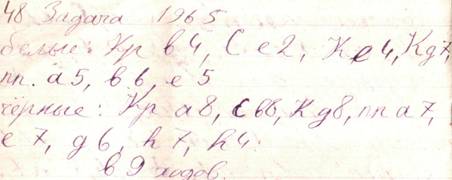 48 Задача 1965
белые: Кр в4, С е2, К е4, Кд7,
пп. а5, в6, е5
чёрные: Кр а8, С в8, К д8, пп а7,
е7, д6, h7, h4.
в 9 ходов.